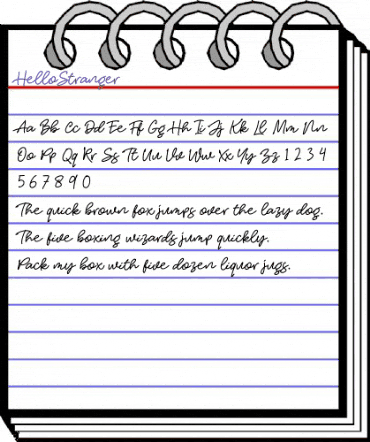 HelloStranger
Aa Bb Cc Dd Ee Ff Gg Hh Ii Jj Kk Ll Mm Nn
Oo Pp Qq Rr Ss Tt Uu Vv Ww Xx Yy Zz 1 2 3 4
5 6 7 8 9 0
The quick brown fox jumps over the lazy dog.
The five boxing wizards jump quickly.
Pack my box with five dozen liquor jugs.